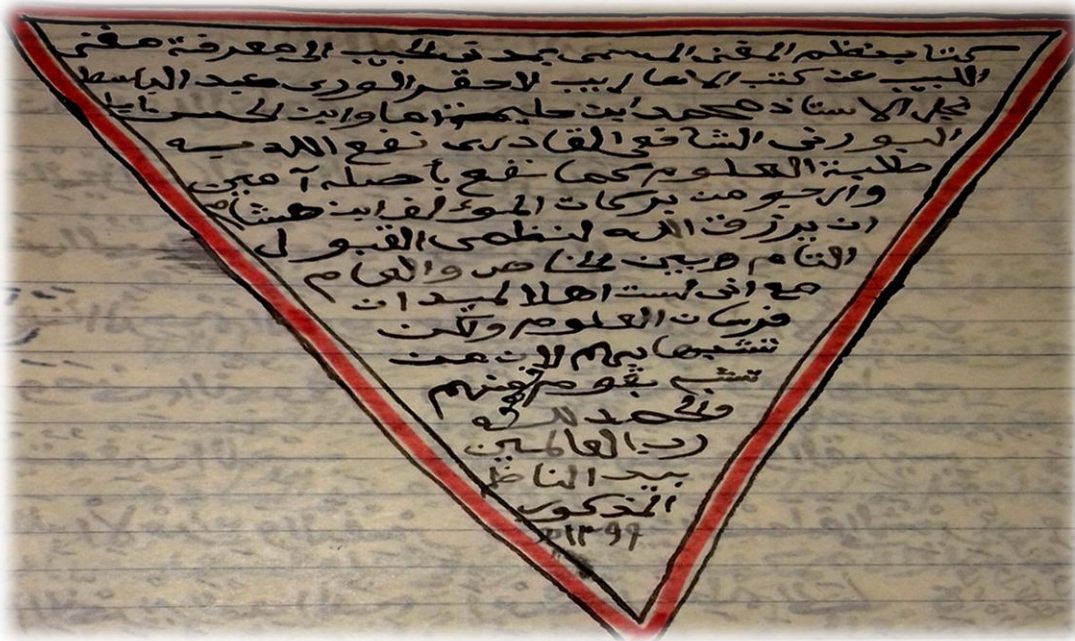 كتاب نظم المغني المسمى بمد تطبيب الى معرفة مغني
اللبيب عن كتب الاعاريب لاحقر الورى عبد الباسط
نجل الاستاذ محمد ابن حليمة اما وابن الحسن ابا
البورني الشافعي القادري نفع الله به
طلبة العلوم كما نفع بأصله آمين
وارجو من بركات المؤلف ابن هشام
ان يرزق الله لنظمي القبول
التام وبين الخاص والعام
مع اني لست اهلا لميدان
فرسان العلوم ولكن
تشبيها بهم لان من
تشبه بقوم فهو منهم
والحمد لله
رب العالمين
بيد الناظم
المذكور
١٣٩٩